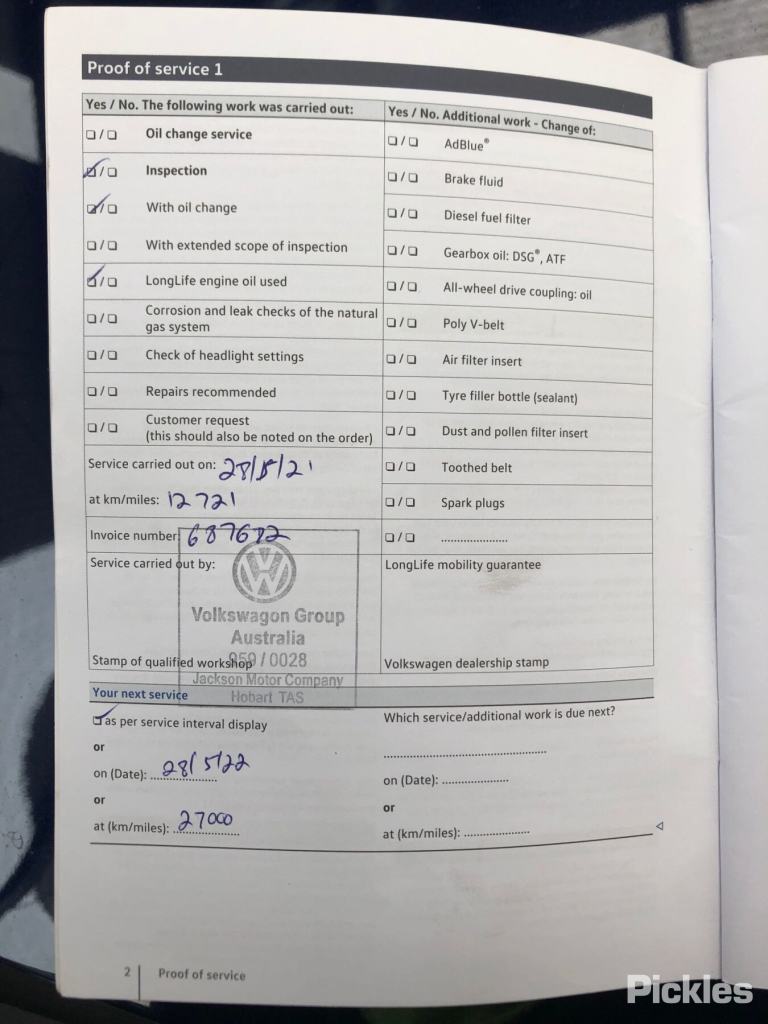 Proof of service 1
Yes / No. The following work was carried out:
❏ / ❏ Oil change service
☑ / ❏ Inspection
☑ / ❏ With oil change
❏ / ❏ With extended scope of inspection
☑ / ❏ LongLife engine oil used
❏ / ❏ Corrosion and leak checks of the natural
gas system
❏ / ❏ Check of headlight settings
❏ / ❏ Repairs recommended
❏ / ❏ Customer request
(this should also be noted on the order)
Service carried out on: 28/5/21
at km/miles: 12721
Invoice number: 687682
Service carried out by:
Volkswagon Group
Australia
959 / 0028
Stamp of qualified workshop
Jackson Motor Company
Hobart TAS
Yes / No. Additional work - Change of:
❏ / ❏ AdBlue®
❏ / ❏ Brake fluid
❏ / ❏ Diesel fuel filter
❏ / ❏ Gearbox oil: DSG®, ATF
❏ / ❏ All-wheel drive coupling: oil
❏ / ❏ Poly V-belt
❏ / ❏ Air filter insert
❏ / ❏ Tyre filler bottle (sealant)
❏ / ❏ Dust and pollen filter insert
❏ / ❏ Toothed belt
❏ / ❏ Spark plugs
❏ / ❏ .....................
LongLife mobility guarantee
Volkswagen dealership stamp
Your next service
☑ as per service interval display
or
on (Date): 28/5/22
or
at (km/miles): 27000
Which service/additional work is due next?
.....................................................
on (Date): .....................
or
at (km/miles): .....................
2 Proof of service
Pickles